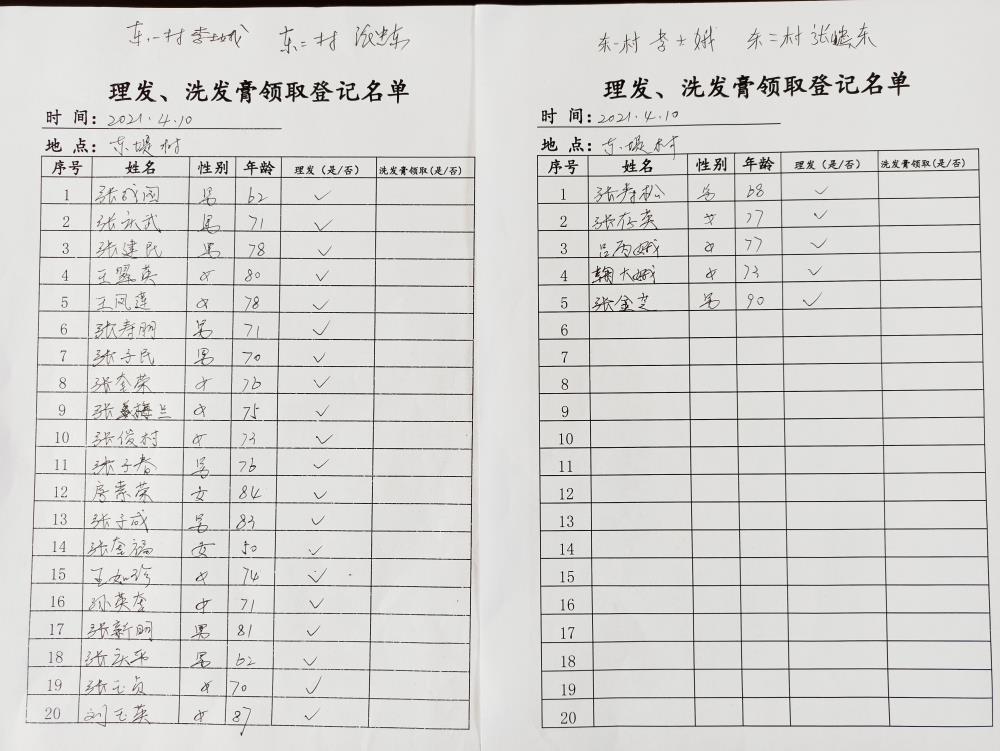 东一村 李士娥 东二村
理发、洗发膏领取登记名单
时 间：2021.4.10
地 点：东堤村
序号 姓名 性别 年龄 理发（是/否） 洗发膏领取(是/否)
1 张成图 男 62 ✓
2 张永武 男 71 ✓
3 张建民 男 78 ✓
4 王翠英 女 80 ✓
5 王凤莲 女 78 ✓
6 张寿朋 男 71 ✓
7 张子民 男 70 ✓
8 张奎荣 女 76 ✓
9 张 梅兰 女 75 ✓
10 张俊村 女 73 ✓
11 张子春 男 76 ✓
12 房素荣 女 84 ✓
13 张子成 男 83 ✓
14 张奎福 女 50 ✓
15 王如珍 女 74 ✓
16 孙英奎 女 71 ✓
17 张新明 男 81 ✓
18 张庆平 男 62 ✓
19 张玉贞 女 70 ✓
20 刘玉英 女 87 ✓
东一村 李士娥 东二村 张 东
理发、洗发膏领取登记名单
时 间：2021.4.10
地 点：东堤村
序号 姓名 性别 年龄 理发（是/否） 洗发膏领取(是/否)
1 张寿松 男 68 ✓
2 张存英 女 77 ✓
3 吕 娥 女 77 ✓
4 大娥 女 73 ✓
5 张金芝 男 90 ✓
6
7
8
9
10
11
12
13
14
15
16
17
18
19
20